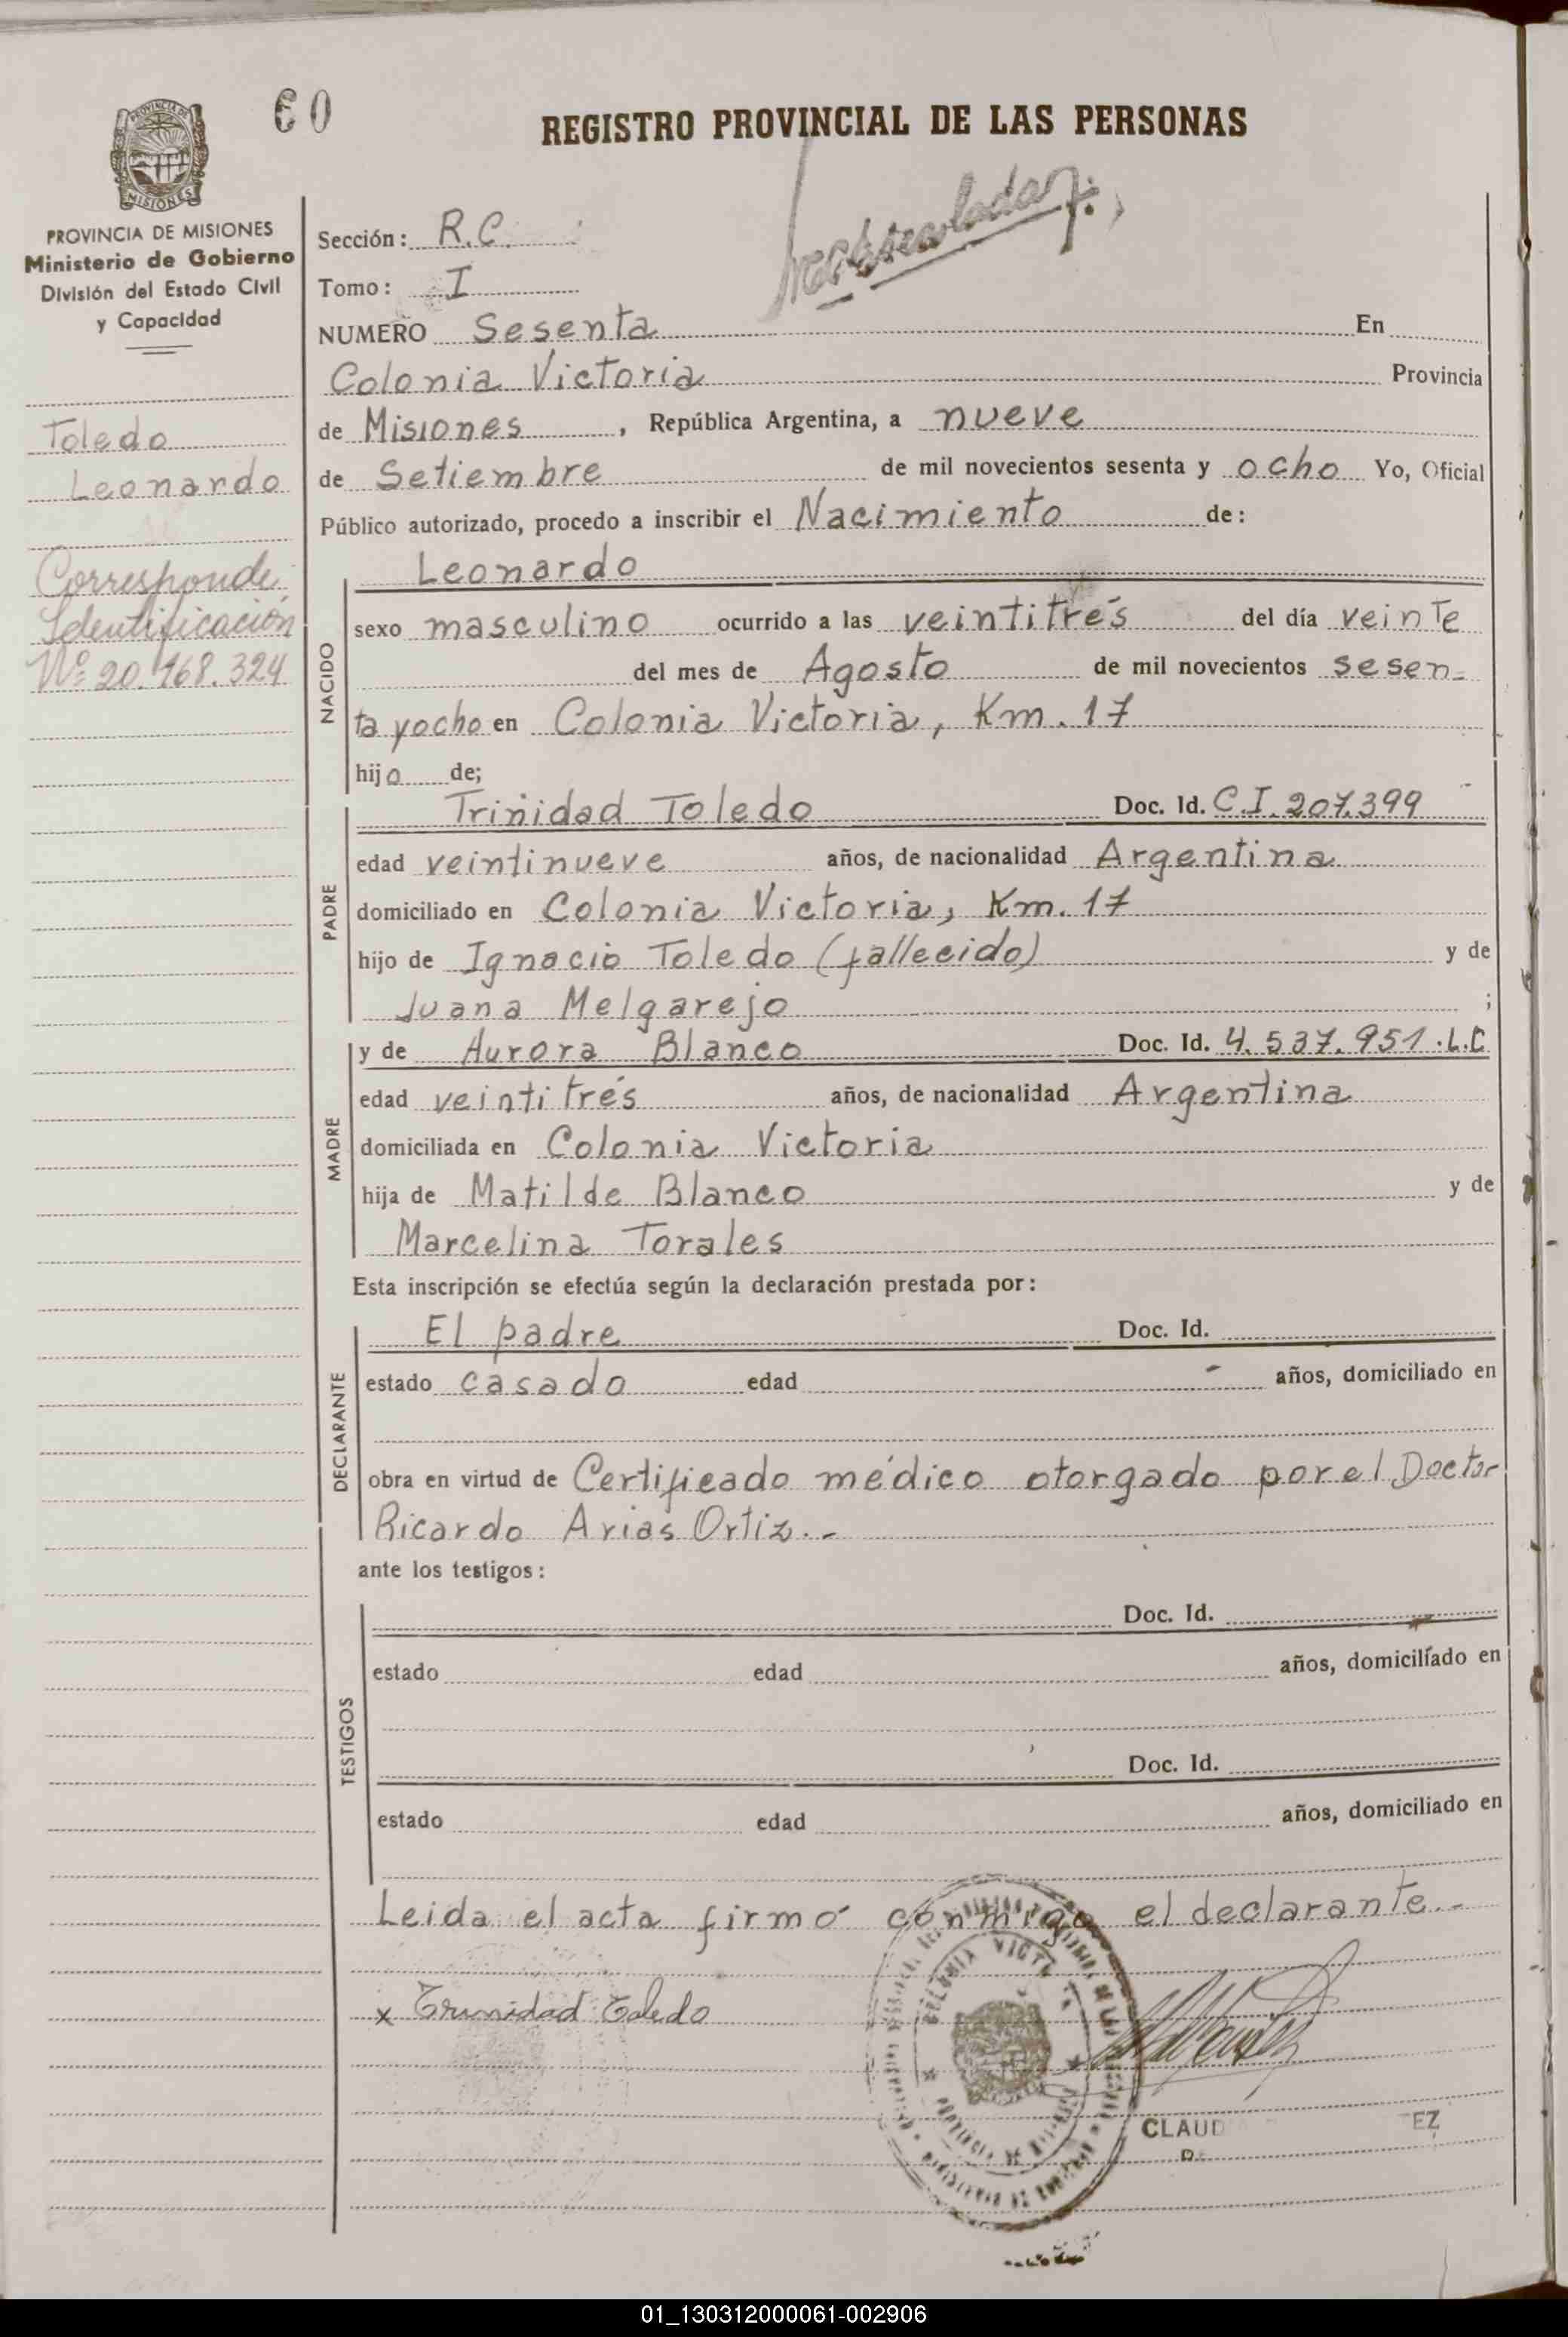 60
REGISTRO PROVINCIAL DE LAS PERSONAS
PROVINCIA DE MISIONES
Ministerio de Gobierno
División del Estado Civil
y Capacidad
Toledo
Leonardo
Corresponde
Identificación
Nº 20.168.324
Sección: R.C.
Tomo: I
NUMERO Sesenta En
Colonia Victoria Provincia
de Misiones, República Argentina, a nueve
de Setiembre de mil novecientos sesenta y ocho Yo, Oficial
Público autorizado, procedo a inscribir el Nacimiento de:
NACIDO
Leonardo
sexo masculino ocurrido a las veintitrés del día veinte
del mes de Agosto de mil novecientos sesen-
ta y ocho en Colonia Victoria, Km. 17
hijo de;
PADRE
Trinidad Toledo Doc. Id. C.I. 207.399
edad veintinueve años, de nacionalidad Argentina
domiciliado en Colonia Victoria, Km. 17
hijo de Ignacio Toledo (fallecido) y de
Juana Melgarejo ;
MADRE
y de Aurora Blanco Doc. Id. 4.537.951.L.C
edad veintitrés años, de nacionalidad Argentina
domiciliada en Colonia Victoria
hija de Matilde Blanco y de
Marcelina Torales
Esta inscripción se efectúa según la declaración prestada por:
DECLARANTE
El padre Doc. Id.
estado casado edad - años, domiciliado en
obra en virtud de Certificado médico otorgado por el Doctor
Ricardo Arias Ortiz.-
ante los testigos:
TESTIGOS
Doc. Id.
estado edad años, domiciliado en
Doc. Id.
estado edad años, domiciliado en
Leida el acta firmó conmigo el declarante.-
x Trinidad Toledo
COLONIA VICTORIA
PROVINCIA DE MISIONES
CLAUD EZ
01_130312000061-002906